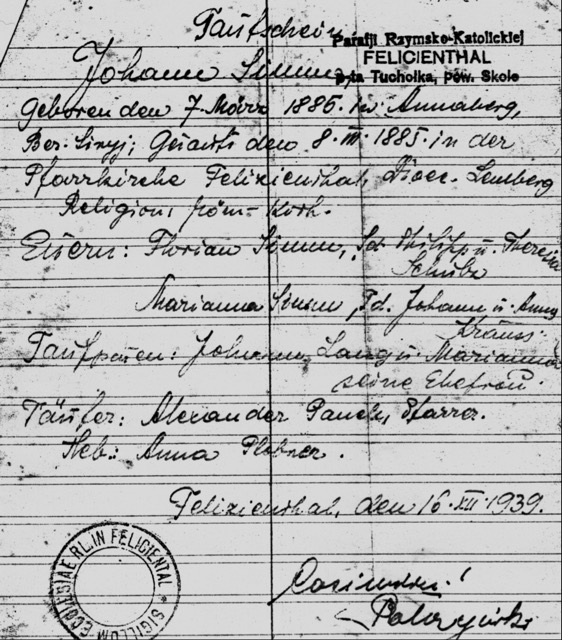 Taufschein
Parafji Rzymsko-Katolickiej
FELICIENTHAL
p-ta Tucholka, pow. Skole
Johann Simm,
Geboren den 7. März 1885. in Annaberg,
Bez. Stryj; Getauft den 8. III. 1885. in der
Pfarrkirche Felizienthal, Dioec. Lemberg
Religion: röm.-kath.
Eltern: Florian Simm, Sd. Philipp u. Theresia
Marianna Simm, Td. Johann u. Anna
Krauss.
Taufpaten: Johann Lang u. Marianna
seine Ehefrau.
Täufer: Alexander Pfarrer.
Heb.: Anna
Felizienthal, den 16. XII. 1939.
SIGILLUM ECCLESIAE RL. IN FELICIENTAL